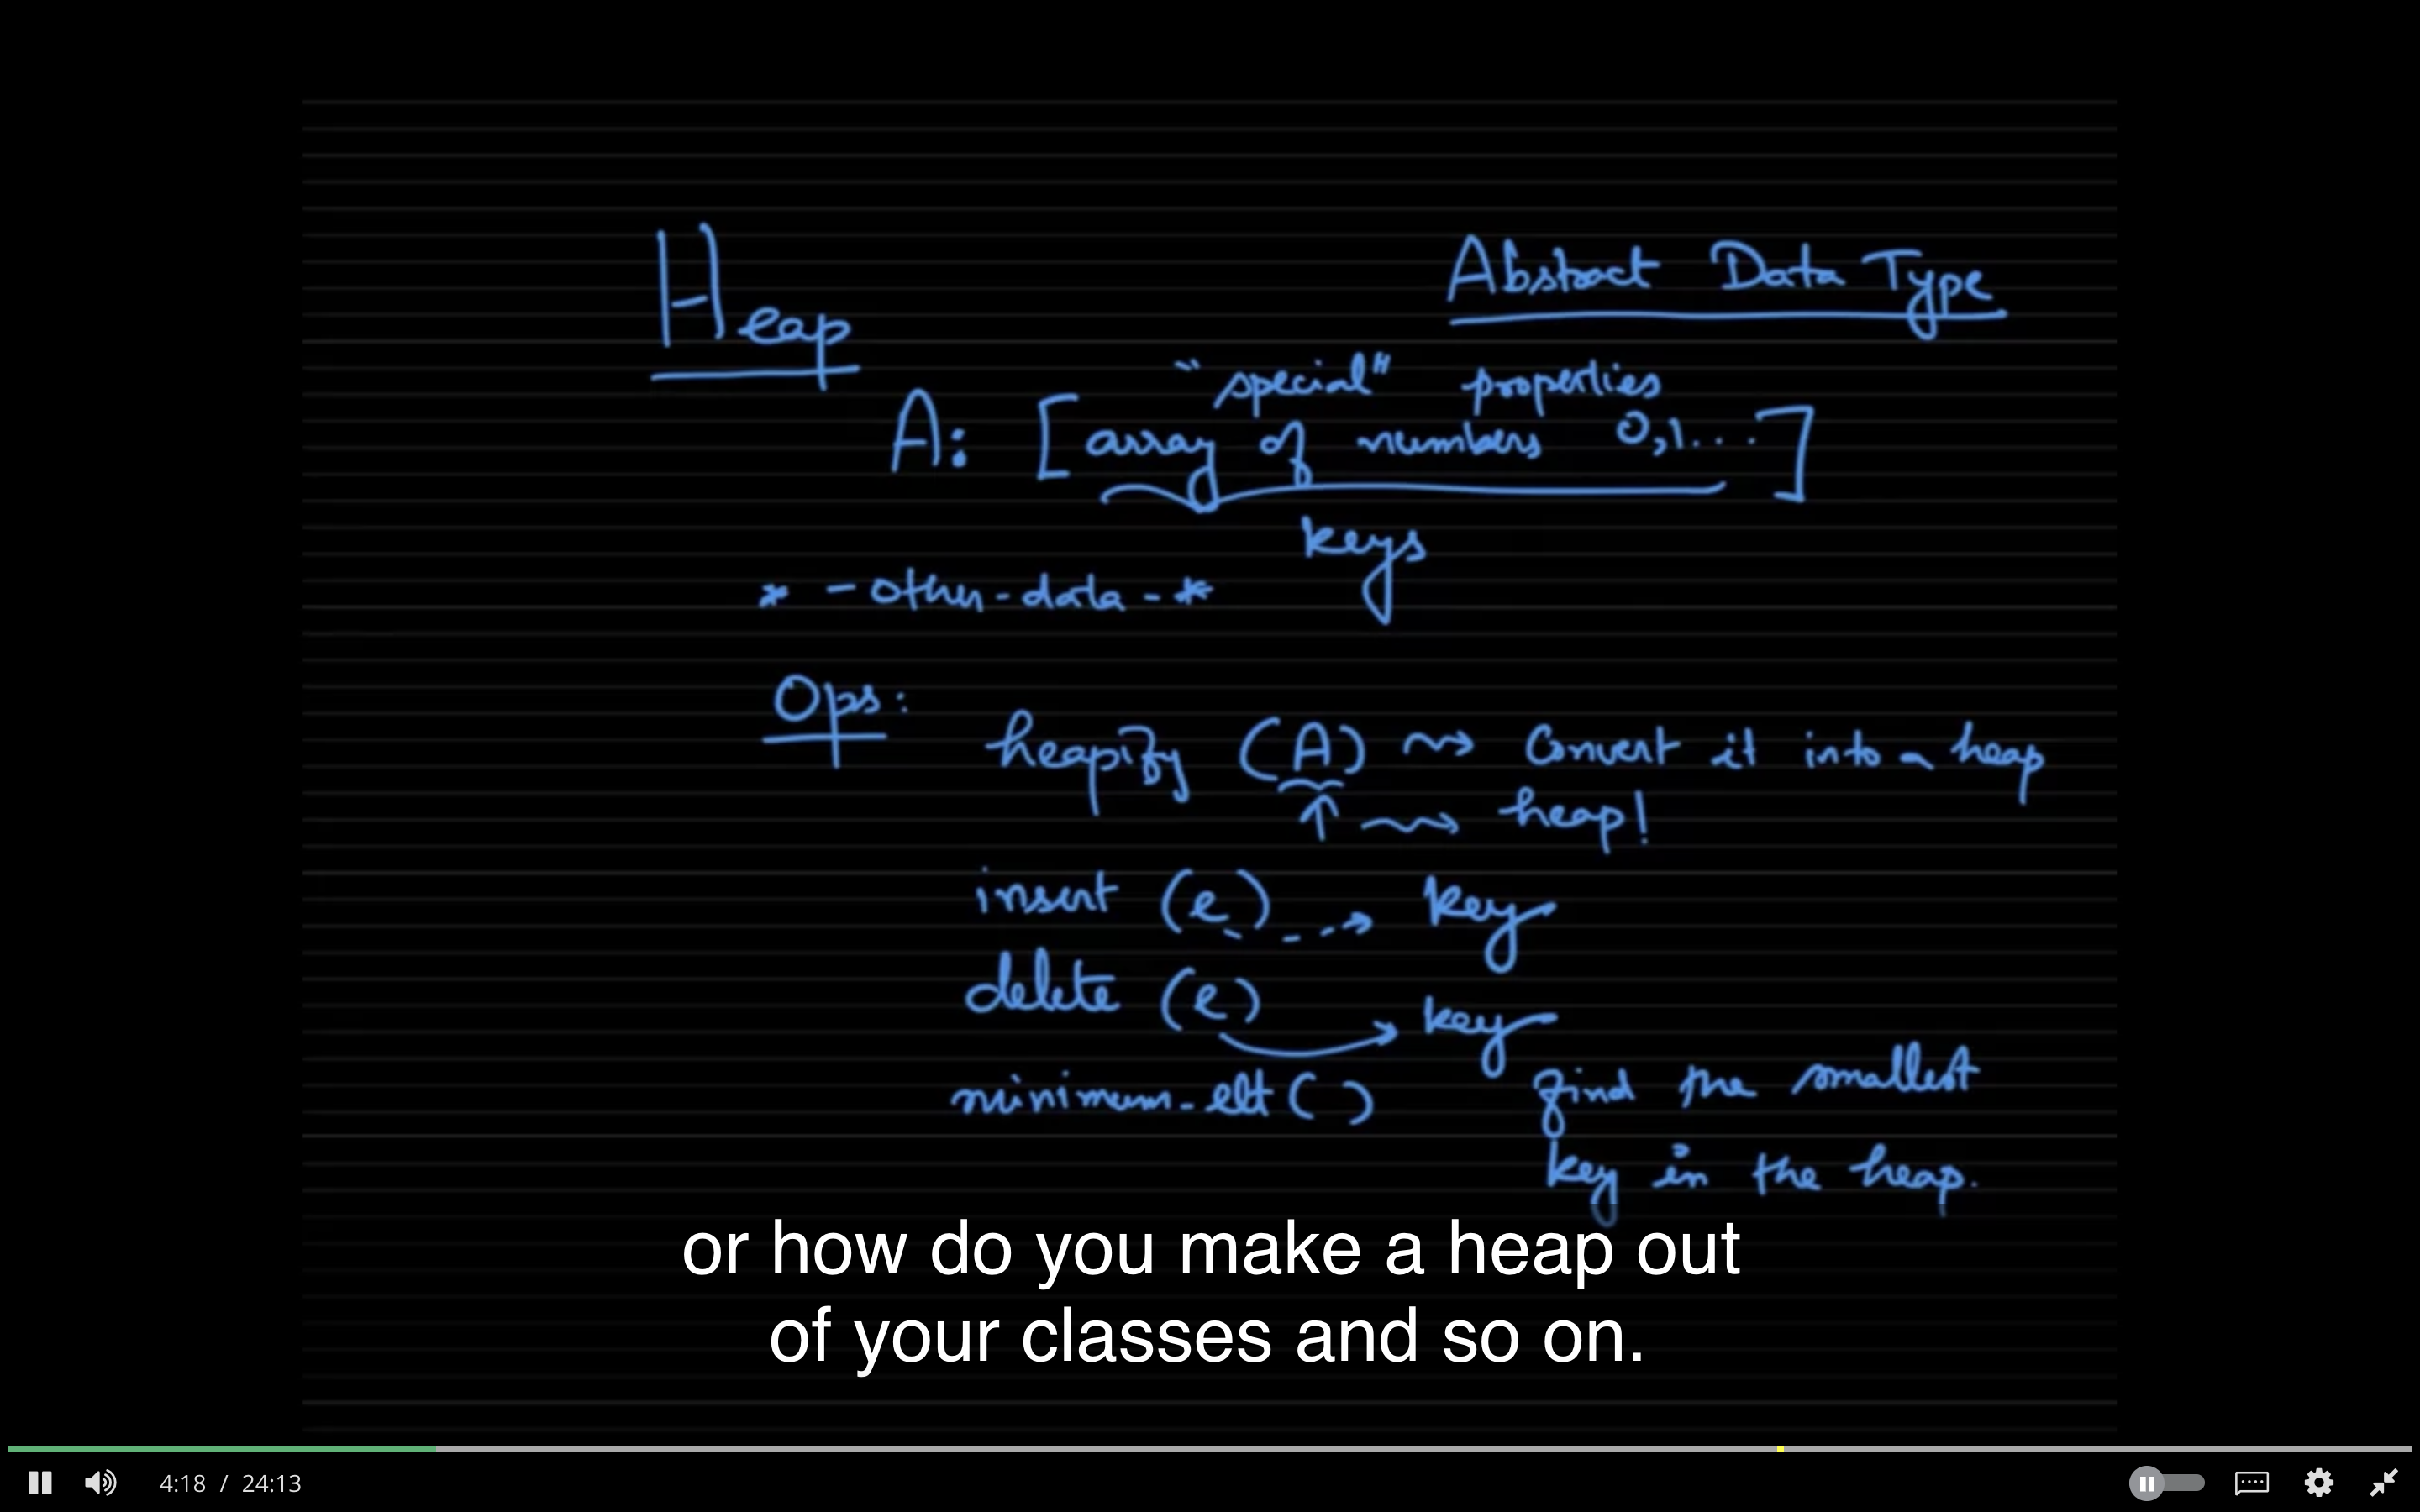 Heap
Abstract Data Type
"special" properties
A: [array of numbers 0,1...]
keys
* - other-data - *
Ops:
heapify (A) ⇝ Convert it into a heap
↑ ⇝ heap!
insert (e) --→ key
delete (e) → key
minimum-elt( ) find the smallest
key in the heap.
or how do you make a heap out
of your classes and so on.
4:18 / 24:13